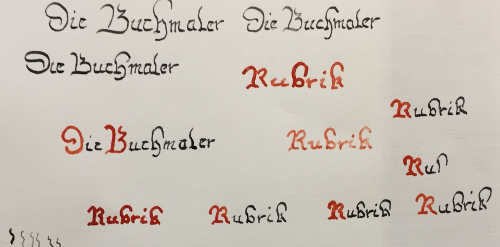 Die Buchmaler Die Buchmaler
Die Buchmaler
Rubrik
Rubrik
Die Buchmaler Rubrik
Ru
Rubrik Rubrik Rubrik Rubrik